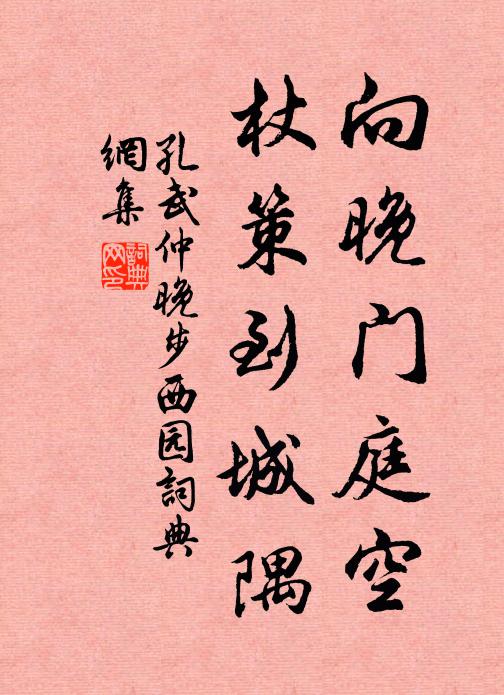 向晚门庭空
杖策到城隅
孔武仲晚步西园詞典
網集
詞典
网印